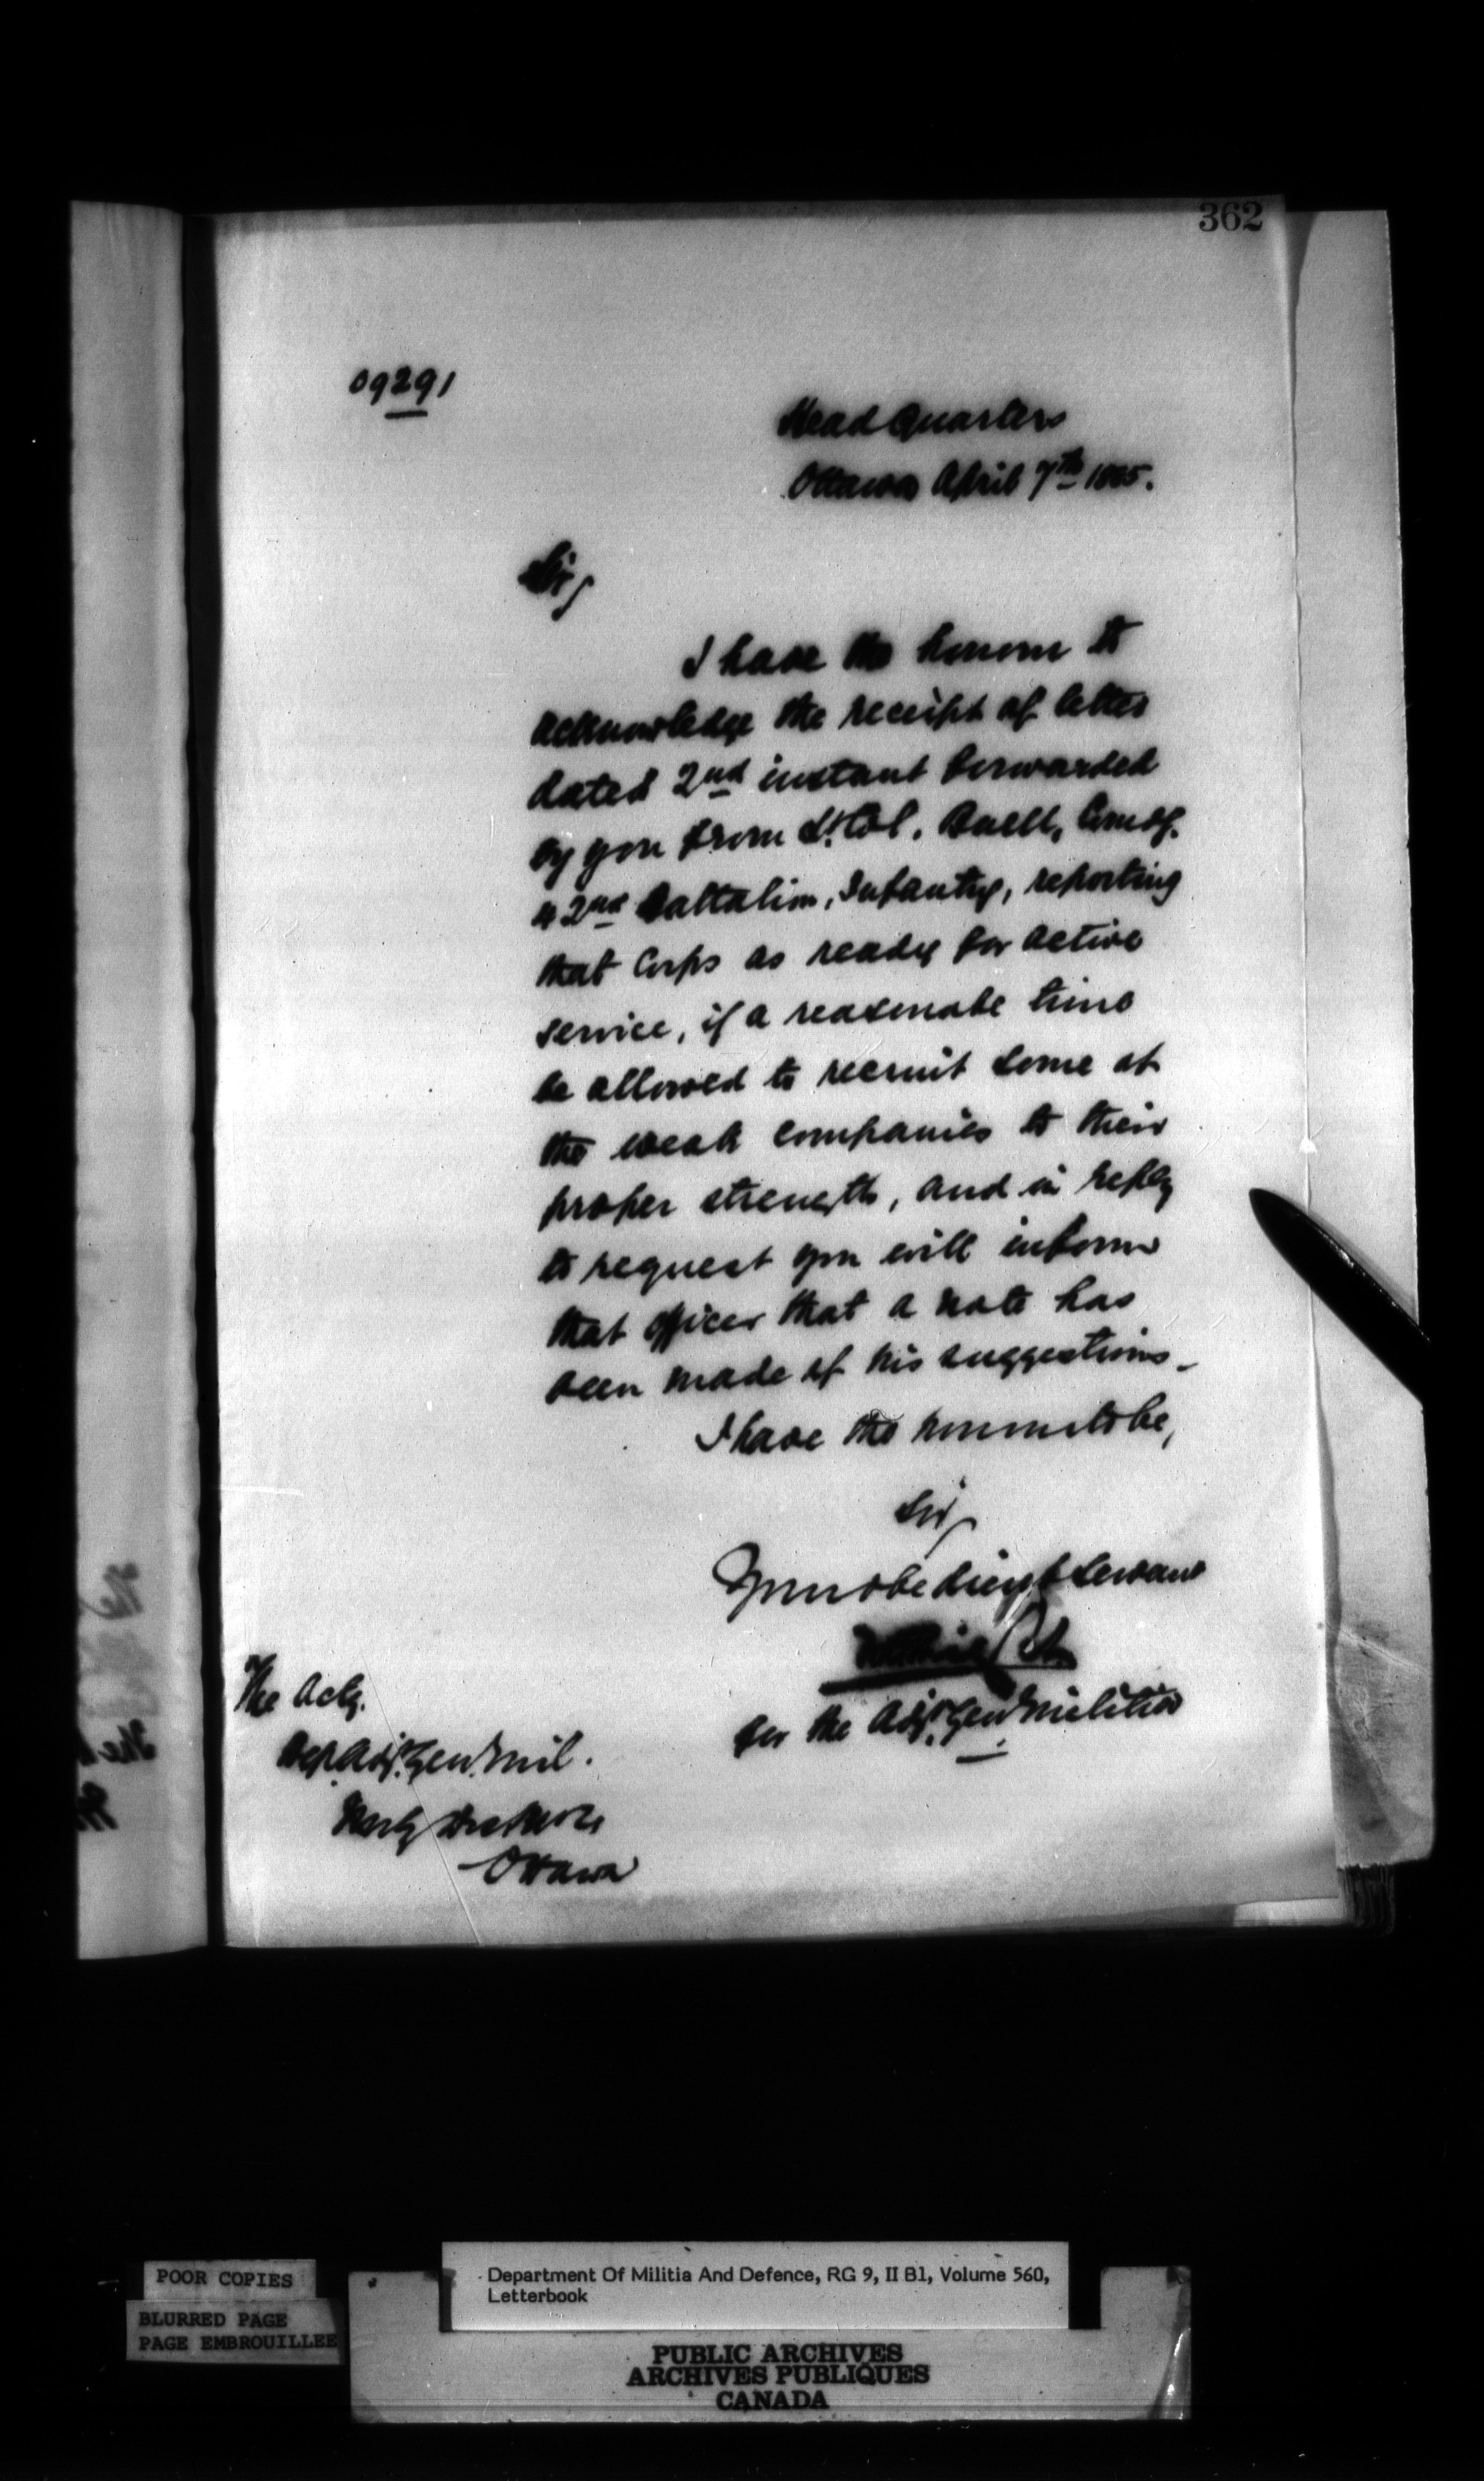 362
09291
Head Quarters
Ottawa April 7th 1885.
Sir,
I have the honour to
acknowledge the receipt of letter
dated 2nd instant forwarded
by you from Lt. Col. Buell, Comdg.
42nd Battalion, Infantry, reporting
that Corps as ready for active
service, if a reasonable time
be allowed to recruit some of
the weak companies to their
proper strength, and in reply
to request you will inform
that officer that a note has
been made of his suggestions_
I have the honour to be,
Sir,
Your obedient servant
for the Adjt. Genl. Militia
The Actg.
Dep. Adjt. Genl. Mil.
Ottawa
POOR COPIES
BLURRED PAGE
PAGE EMBROUILLEE
Department Of Militia And Defence, RG 9, II B1, Volume 560,
Letterbook
PUBLIC ARCHIVES
ARCHIVES PUBLIQUES
CANADA